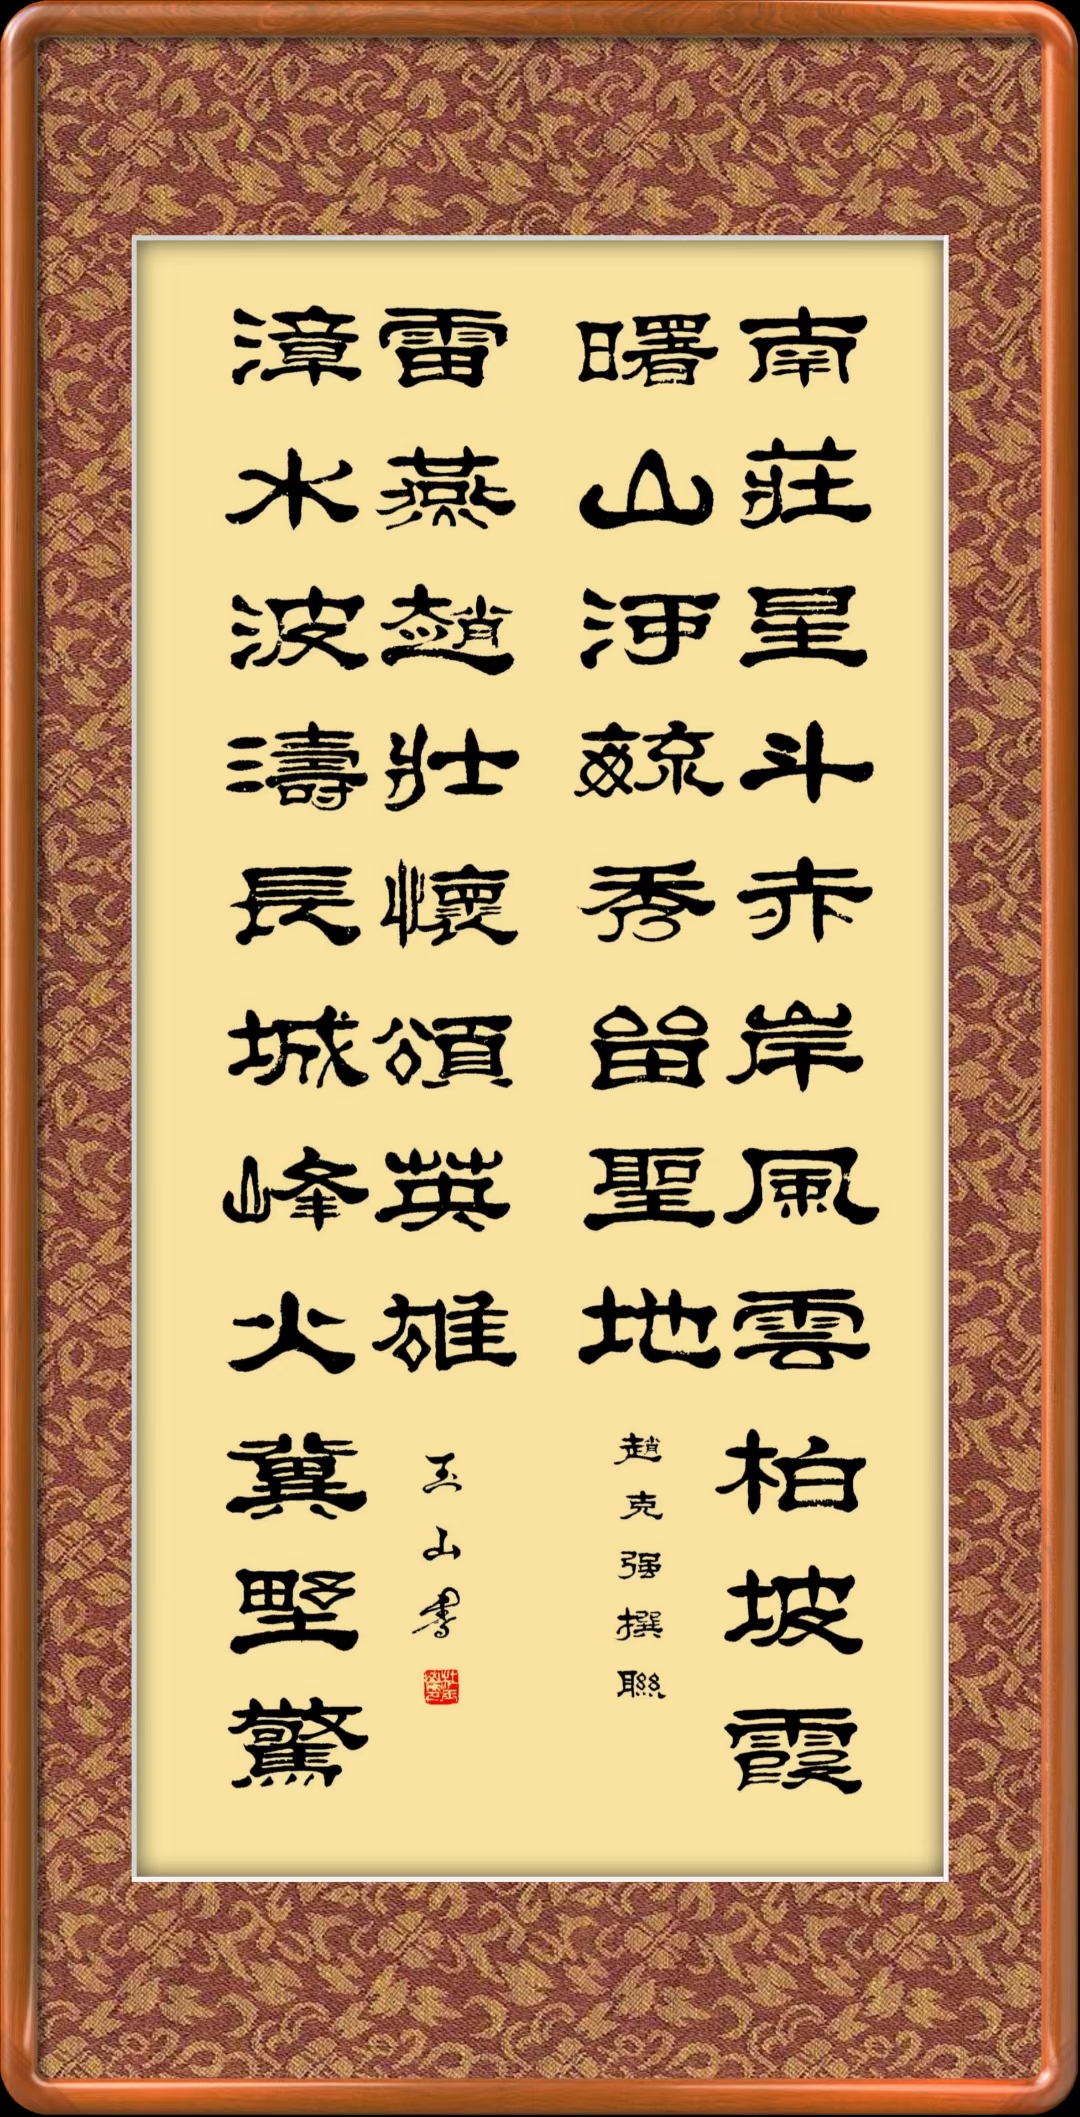 南莊星斗赤岸風雲柏坡霞
曙山河毓秀留聖地
趙克强撰聯
漳水波濤長城峰火冀野驚
雷燕趙壯懷頌英雄
玉山書